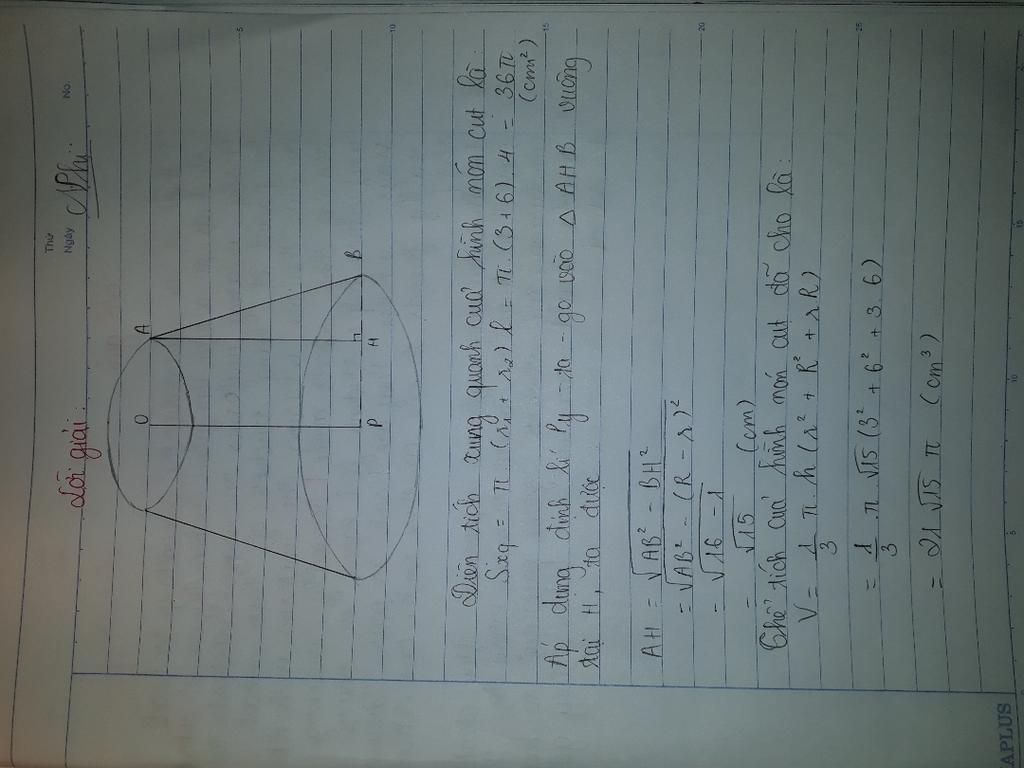 Thứ
Ngày
No.
Nhi.
Lời giải:
O
A
P
H
B
Diện tích xung quanh của hình nón cụt là:
Sxq = π.(r₁ + r₂) l = π.(3+6).4 = 36π
(cm²)
Áp dụng định lí Py-ta-go vào △ AHB vuông
tại H, ta được
AH = √(AB² - BH²)
= √(AB² - (R - r)²)
= √(16 - 1)
= √15 (cm)
Thể tích của hình nón cụt đã cho là:
V = 1/3 π.h (r² + R² + rR)
= 1/3.π.√15 (3² + 6² + 3.6)
= 21√15 π (cm³)
5
10
15
20
25
5
10
15
APLUS